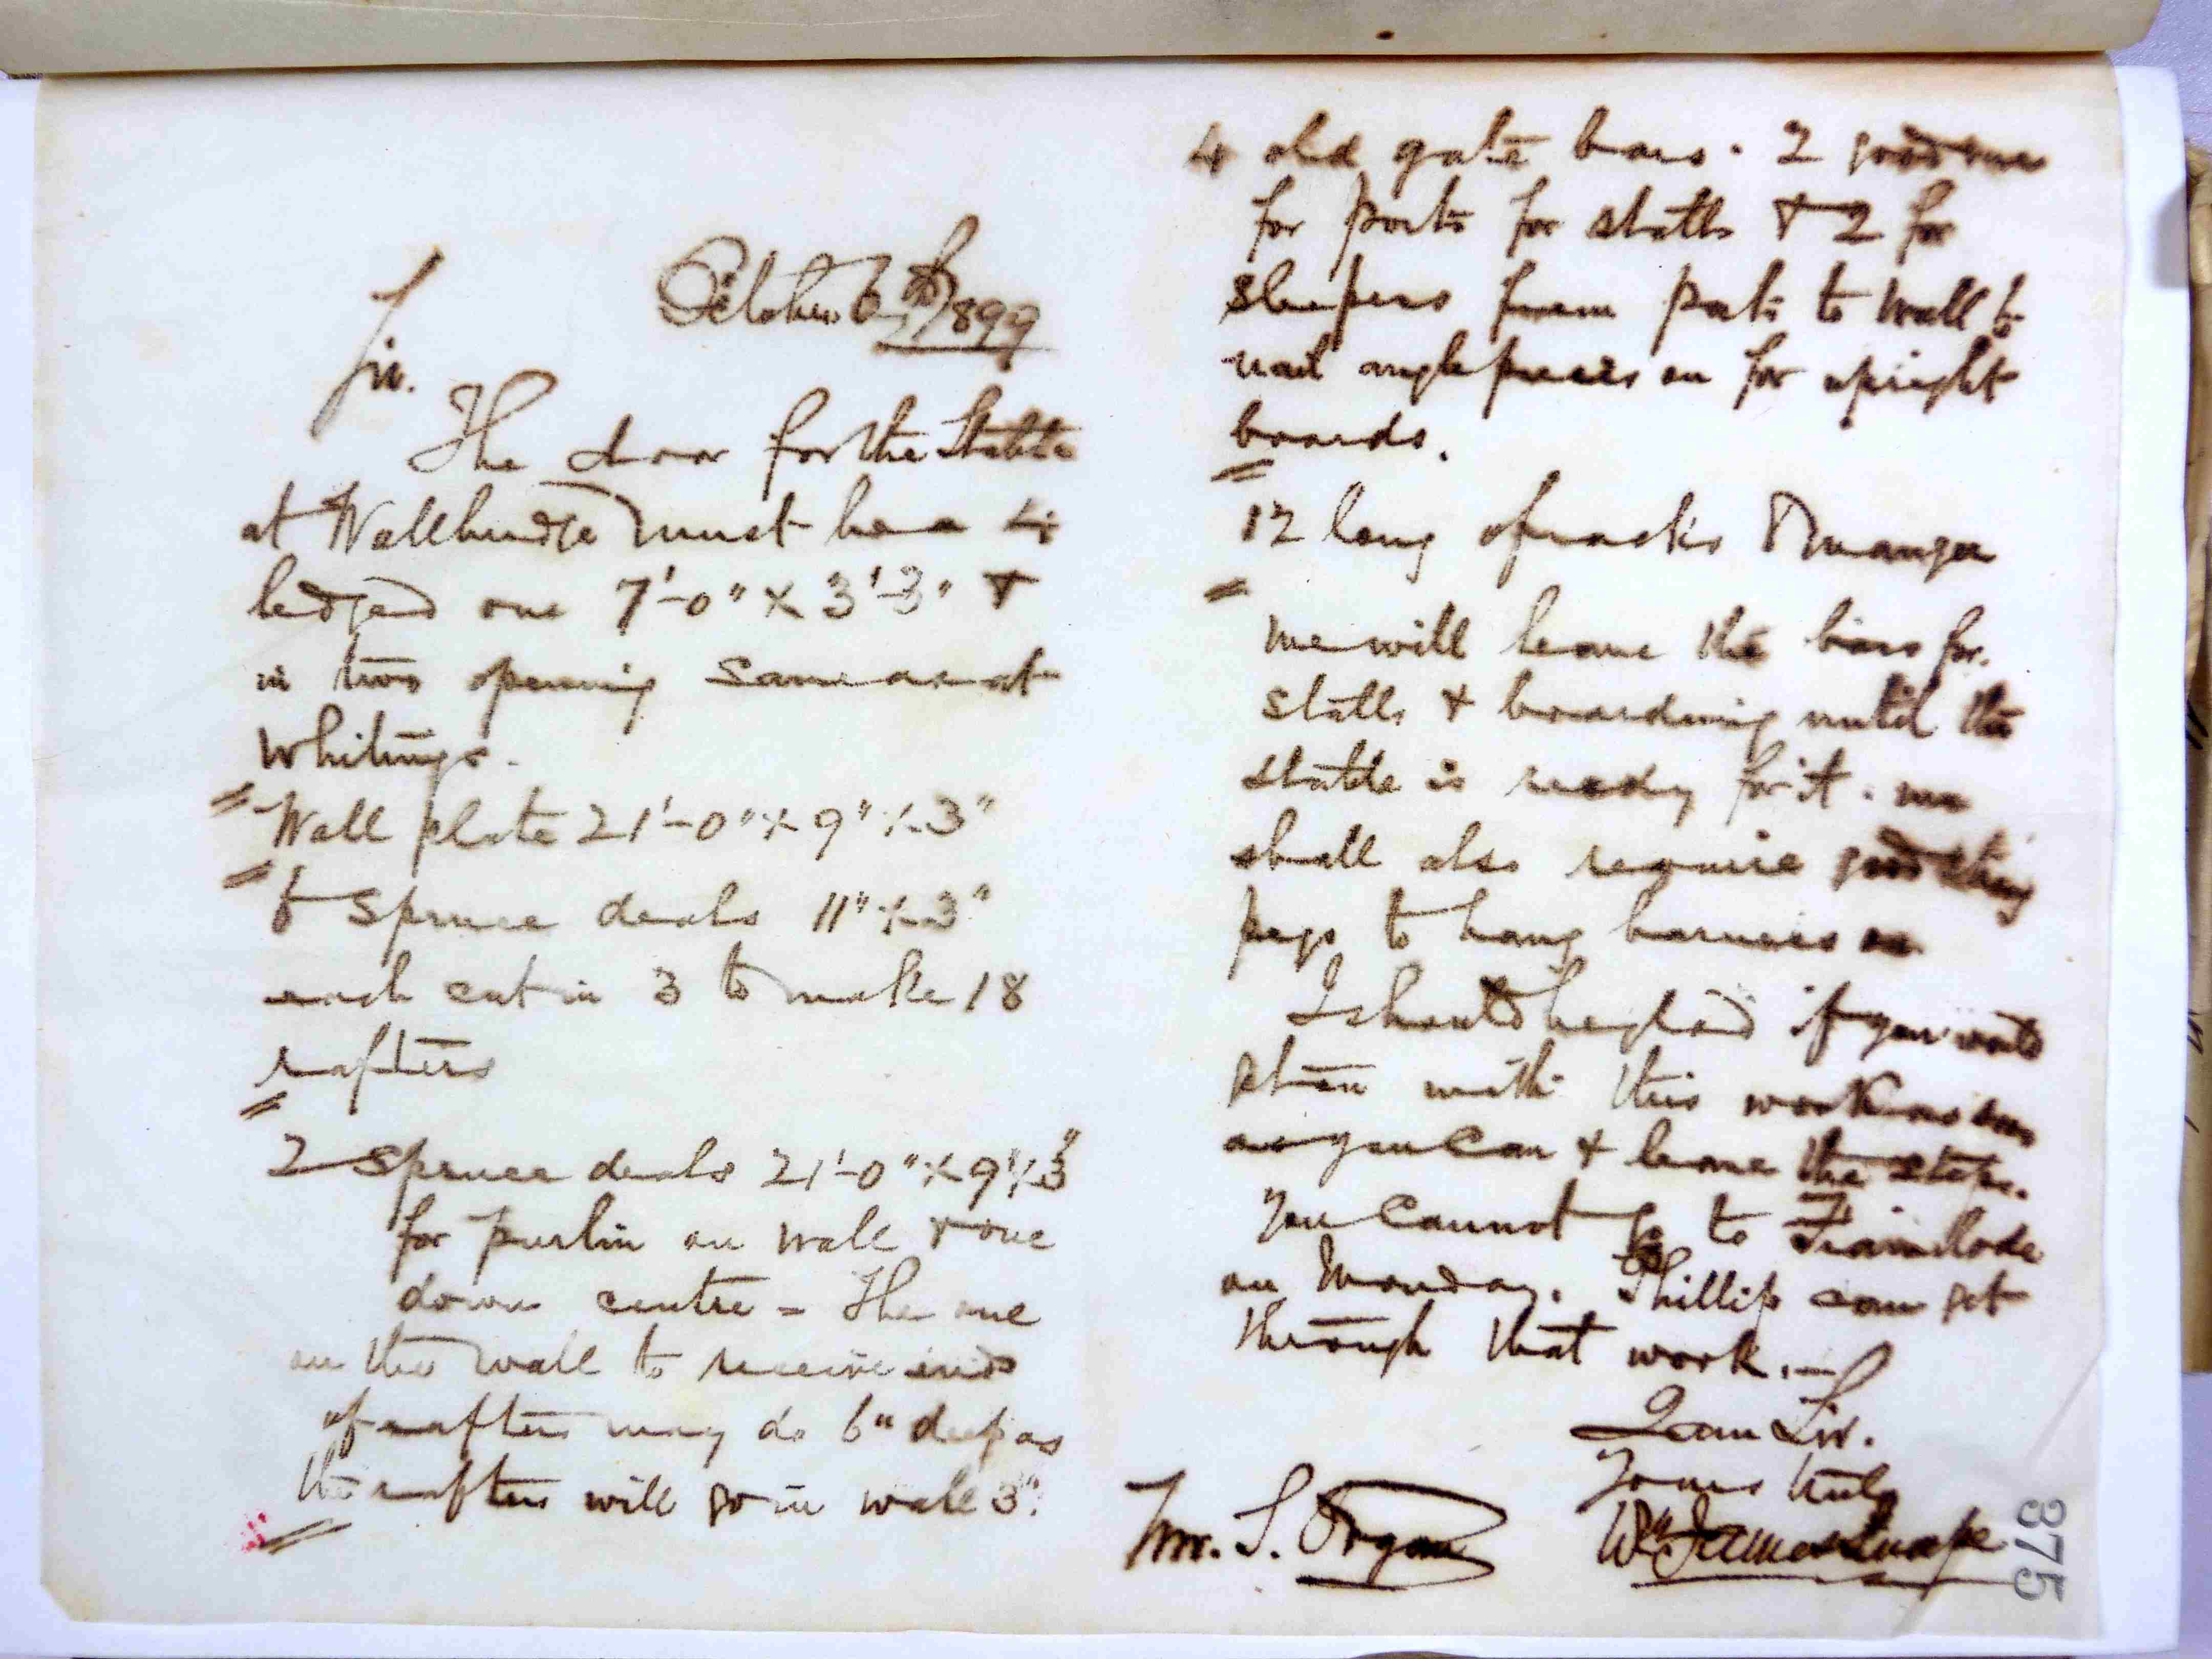 October 6th 1899
Sir.
The door for the Stable
at Wallbridge must be a 4
ledged one 7'-0" x 3'-3" &
in two opening same as at
Whitings.
Wall plate 21'-0" x 9" x 3"
6 Spruce deals 11" x 3"
each cut in 3 to make 18
rafters
2 Spruce deals 21'-0" x 9" x 3"
for purlin on wall & one
down centre - The one
on the wall to receive ends
of rafters may do 6" deep as
the rafters will go in wall 3".
4 old gate bars. 2 good ones
for posts for stalls & 2 for
sleepers from posts to wall to
nail angle pieces on for upright
boards.
12 long of racks & manger
We will leave the bars for
stalls & boarding until the
stable is ready for it. we
shall also require good strong
pegs to hang harness on
I should be glad if you would
go on with this work as soon
as you can & leave the steps.
You cannot go to Framilode
on Monday. Phillip can get
through that work.-
I am Sir.
Yours truly
Wm James Snape
Mr. S. Organ
375